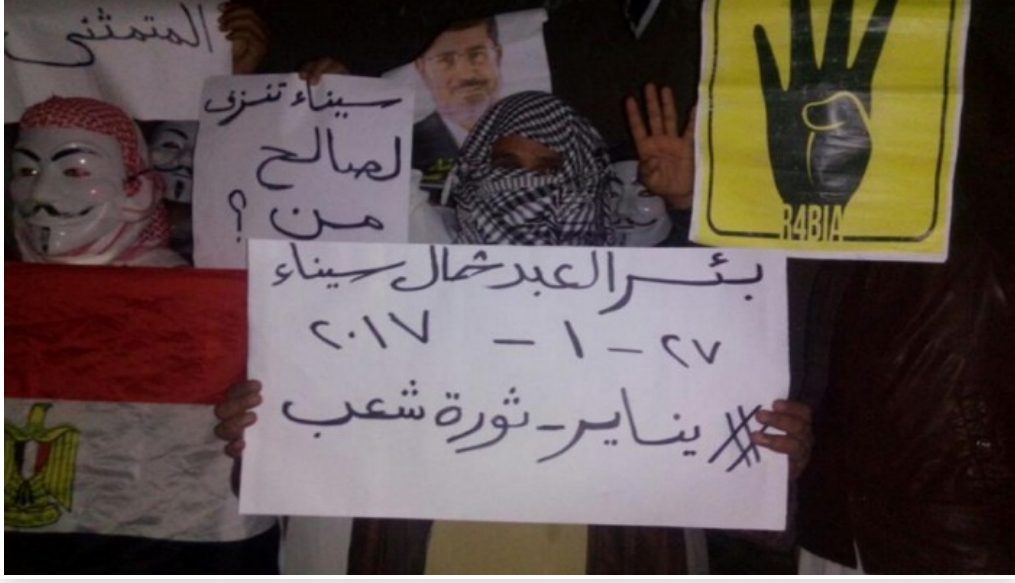 سيناء تنزف
لصالح
من ؟
R4BIA
بئر العبد شمال سيناء
٢٧ - ١ - ٢٠١٧
#يناير_ثورة شعب